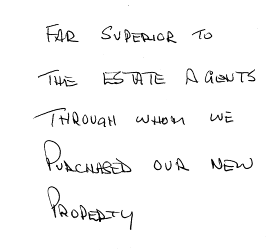 FAR SUPERIOR TO
THE ESTATE AGENTS
THROUGH WHOM WE
PURCHASED OUR NEW
PROPERTY